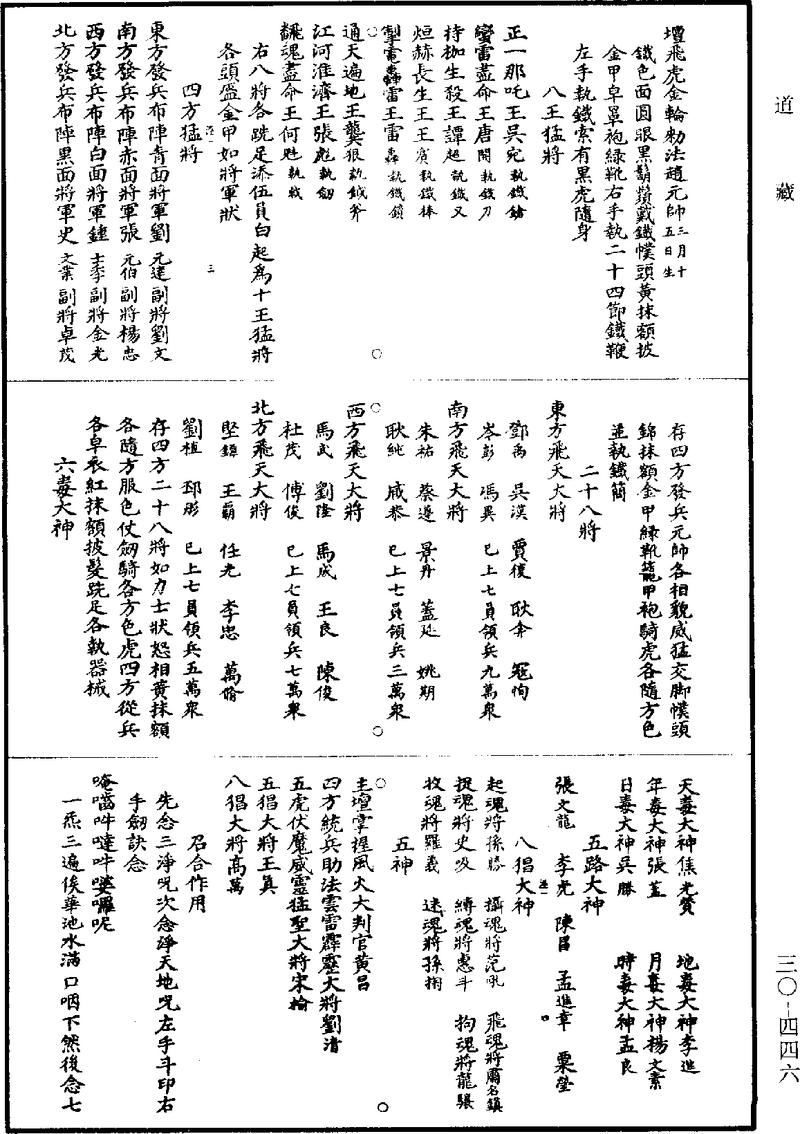 道藏
壇飛虎金輪勑法趙元帥三月十五日生
鐵色面圓眼黑鬍鬚戴鐵幞頭黃抹額披
金甲皁罩袍綠靴右手執二十四節鐵鞭
左手執鐵索有黑虎隨身
八王猛將
正一那吒王吳宛執鐵鎗
蠻雷盡命王唐閱執鐵刀
持枷生殺王譚超執鐵叉
烜赫長生王王賓執鐵棒
掣電轟雷王雷轟執鐵鎖
通天遍地王龔狠執鐵斧
江河淮濟王張彪執劒
飜魂盡命王何魋執戟
右八將各跣足添伍員白起爲十王猛將
各頭盔金甲如將軍狀
四方猛將
東方發兵布陣青面將軍劉元達副將劉文
南方發兵布陣赤面將軍張元伯副將楊忠
西方發兵布陣白面將軍鍾士季副將金光
北方發兵布陣黑面將軍史文業副將卓茂
三
存四方發兵元帥各相貌威猛交脚幞頭
錦抹額金甲綠靴籠甲袍騎虎各隨方色
並執鐵簡
二十八將
東方飛天大將
鄧禹 吳漢 賈復 耿弇 寇恂
岑彭 馮異 已上七員領兵九萬衆
南方飛天大將
朱祐 蔡遵 景丹 蓋延 姚期
耿純 臧恭 已上七員領兵三萬衆
西方飛天大將
馬武 劉隆 馬成 王良 陳俊
杜茂 傅俊 已上七員領兵七萬衆
北方飛天大將
堅鐔 王霸 任光 李忠 萬脩
劉植 邳彤 已上七員領兵五萬衆
存四方二十八將如力士狀怒相黃抹額
各隨方服色仗劒騎各方色虎四方從兵
各皁衣紅抹額披髮跣足各執器械
六毒大神
天毒大神焦光贊 地毒大神李進
年毒大神張蓋 月毒大神楊文素
日毒大神吳勝 時毒大神孟良
五路大神
張文龍 李光 陳昌 孟進章 栗瑩
八猖大神
起魂將孫勝 攝魂將范吼 飛魂將爾名鎮
捉魂將史吸 縛魂將惠斗 拘魂將龍張
收魂將羅義 迷魂將孫栩
五神
主壇掌握風火大判官黃呂
四方統兵助法雲雷霹靂大將劉清
五虎伏魔威靈猛聖大將宋掄
五猖大將王真
八猖大將高萬
召合作用
先念三淨呪次念淨天地呪左手斗印右
手劒訣念
唵噹吽噠吽囉呢
一炁三遍俟華池水滿口咽下然後念七
三〇-四四六